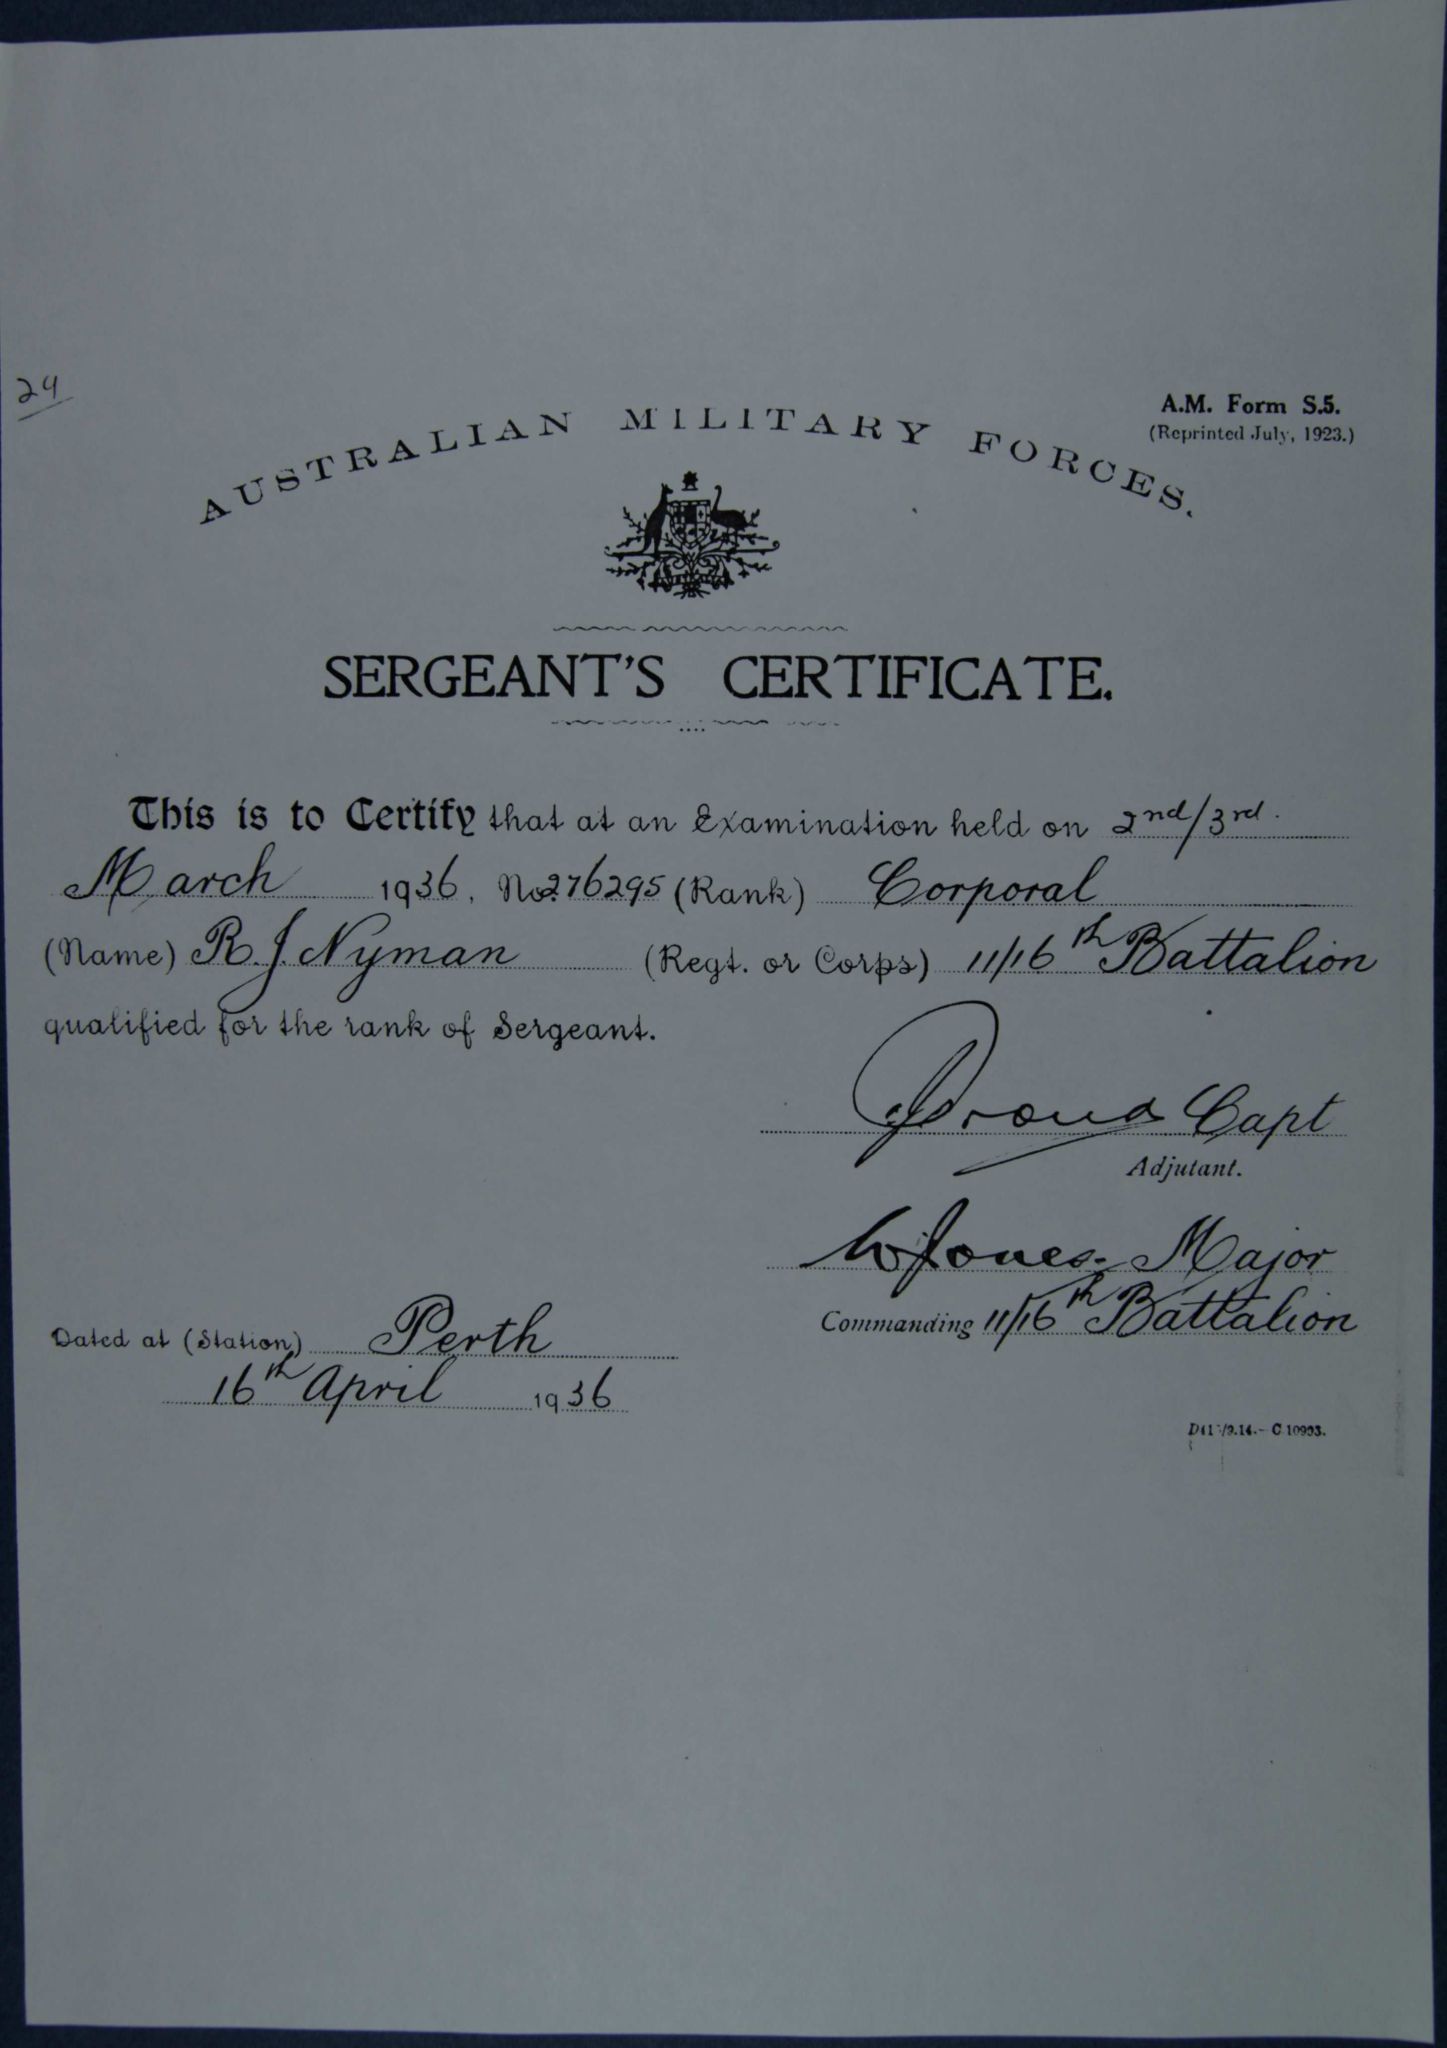 24
A.M. Form S.5.
(Reprinted July, 1923.)
AUSTRALIAN MILITARY FORCES.
SERGEANT'S CERTIFICATE.
This is to Certify that at an Examination held on 2nd/3rd.
March 1936, No. 276295 (Rank) Corporal
(Name) R. J. Nyman (Regt. or Corps) 11/16th Battalion
qualified for the rank of Sergeant.
Proud Capt
Adjutant.
W Jones. Major
Commanding 11/16th Battalion
Dated at (Station) Perth
16th April 1936
C.10993.